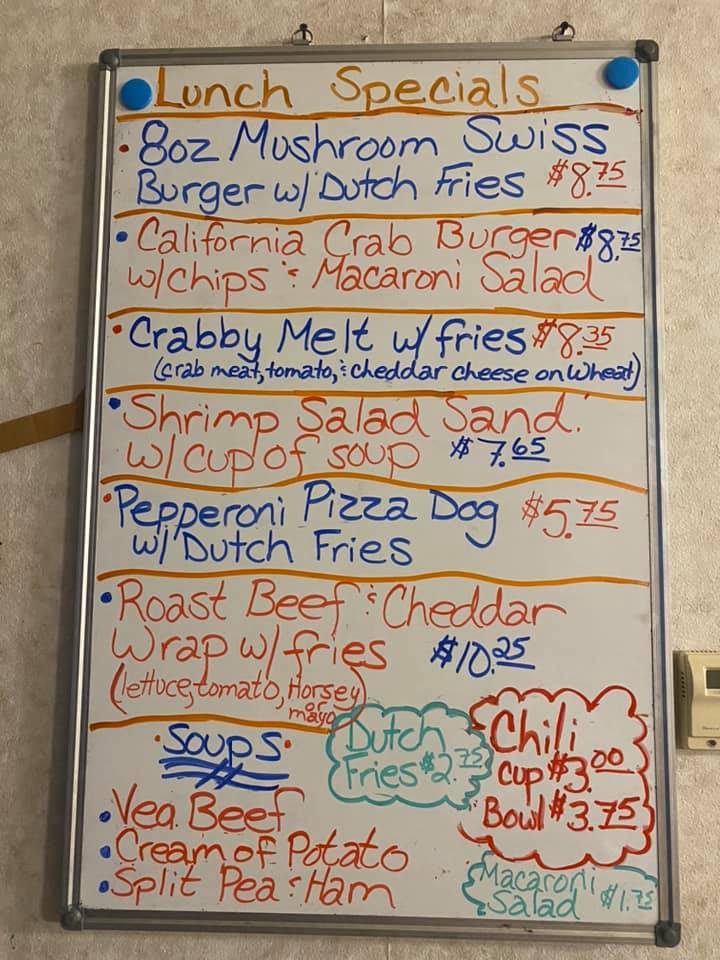 Lunch Specials
• 8oz Mushroom Swiss
Burger w/ Dutch Fries $8.75
• California Crab Burger $8.75
w/chips & Macaroni Salad
• Crabby Melt w/ fries $8.35
(crab meat, tomato, & cheddar cheese on wheat)
• Shrimp Salad Sand.
w/ cup of soup $7.65
• Pepperoni Pizza Dog $5.75
w/ Dutch Fries
• Roast Beef & Cheddar
Wrap w/ fries $10.25
(lettuce, tomato, Horsey
or
mayo)
• Soups •
• Veg Beef
• Cream of Potato
• Split Pea & Ham
Dutch
Fries $2.75
Chili
cup $3.00
Bowl $3.75
Macaroni
Salad $1.75